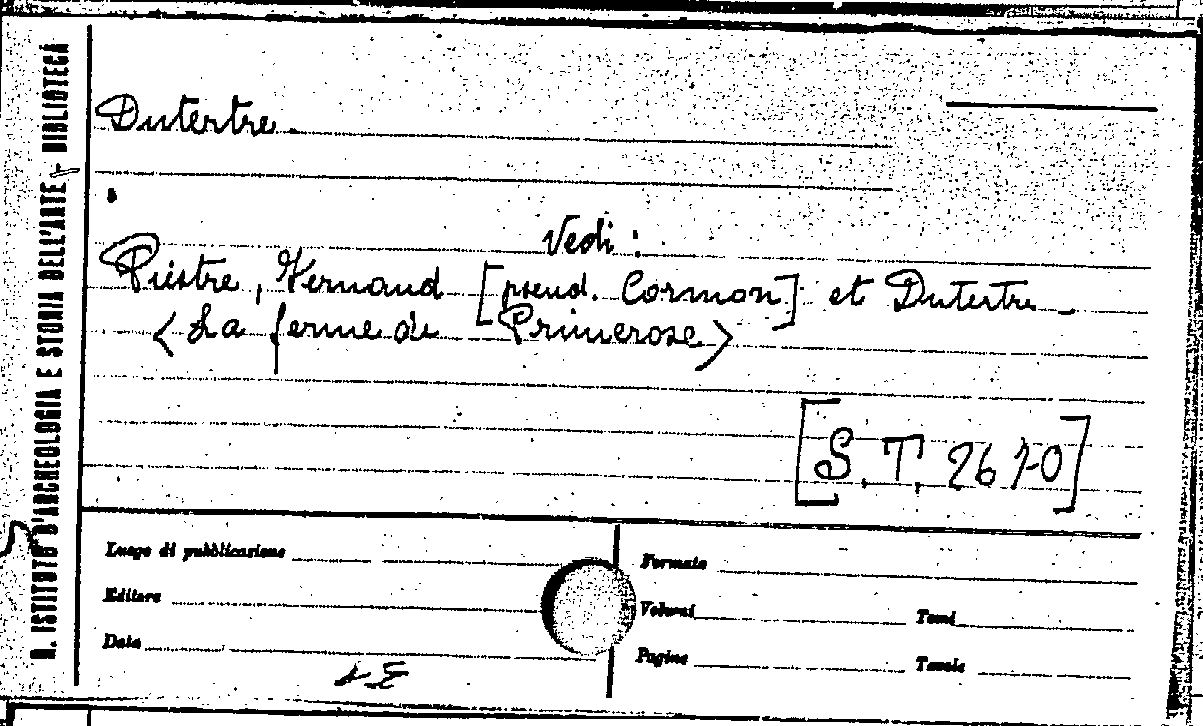 R. ISTITUTO D'ARCHEOLOGIA E STORIA DELL'ARTE - BIBLIOTECA
Dutertre.
Vedi:
Piestre, Fernand [pseud. Cormon] et Dutertre_
<La ferme de Primerose>
[S.T. 2670]
Luogo di pubblicazione
Editore
Data
Formato
Volumi Tomi
Pagine Tavole